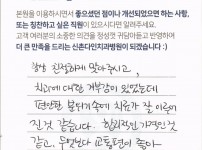 본원을 이용하시면서 좋으셨던 점이나 개선되었으면 하는 사항,
또는 칭찬하고 싶은 직원이 있으시다면 알려주세요.
고객 여러분의 소중한 의견을 정성껏 귀담아듣고 반영하여
더 큰 만족을 드리는 신촌다인치과병원이 되겠습니다 :)
항상 친절하게 맞아주시고,
치과에 대한 거부감이 있었는데
편안한 분위기속에 치료가 잘 이루어
진것 같습니다. 합리적인 가격인것
같고, 무엇보다 교통편이 좋아